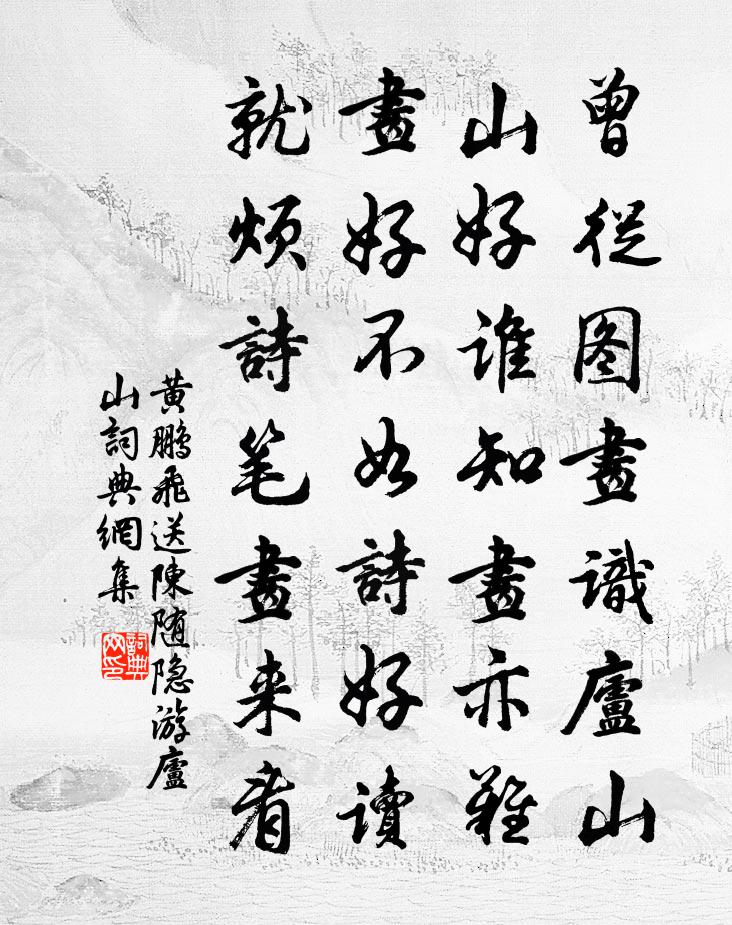 曾從图畫識廬山
山好谁知畫亦難
畫好不如詩好讀
就烦詩笔畫来看
黄鹏飛送陳随隐游廬
山詞典網集
詞典网印